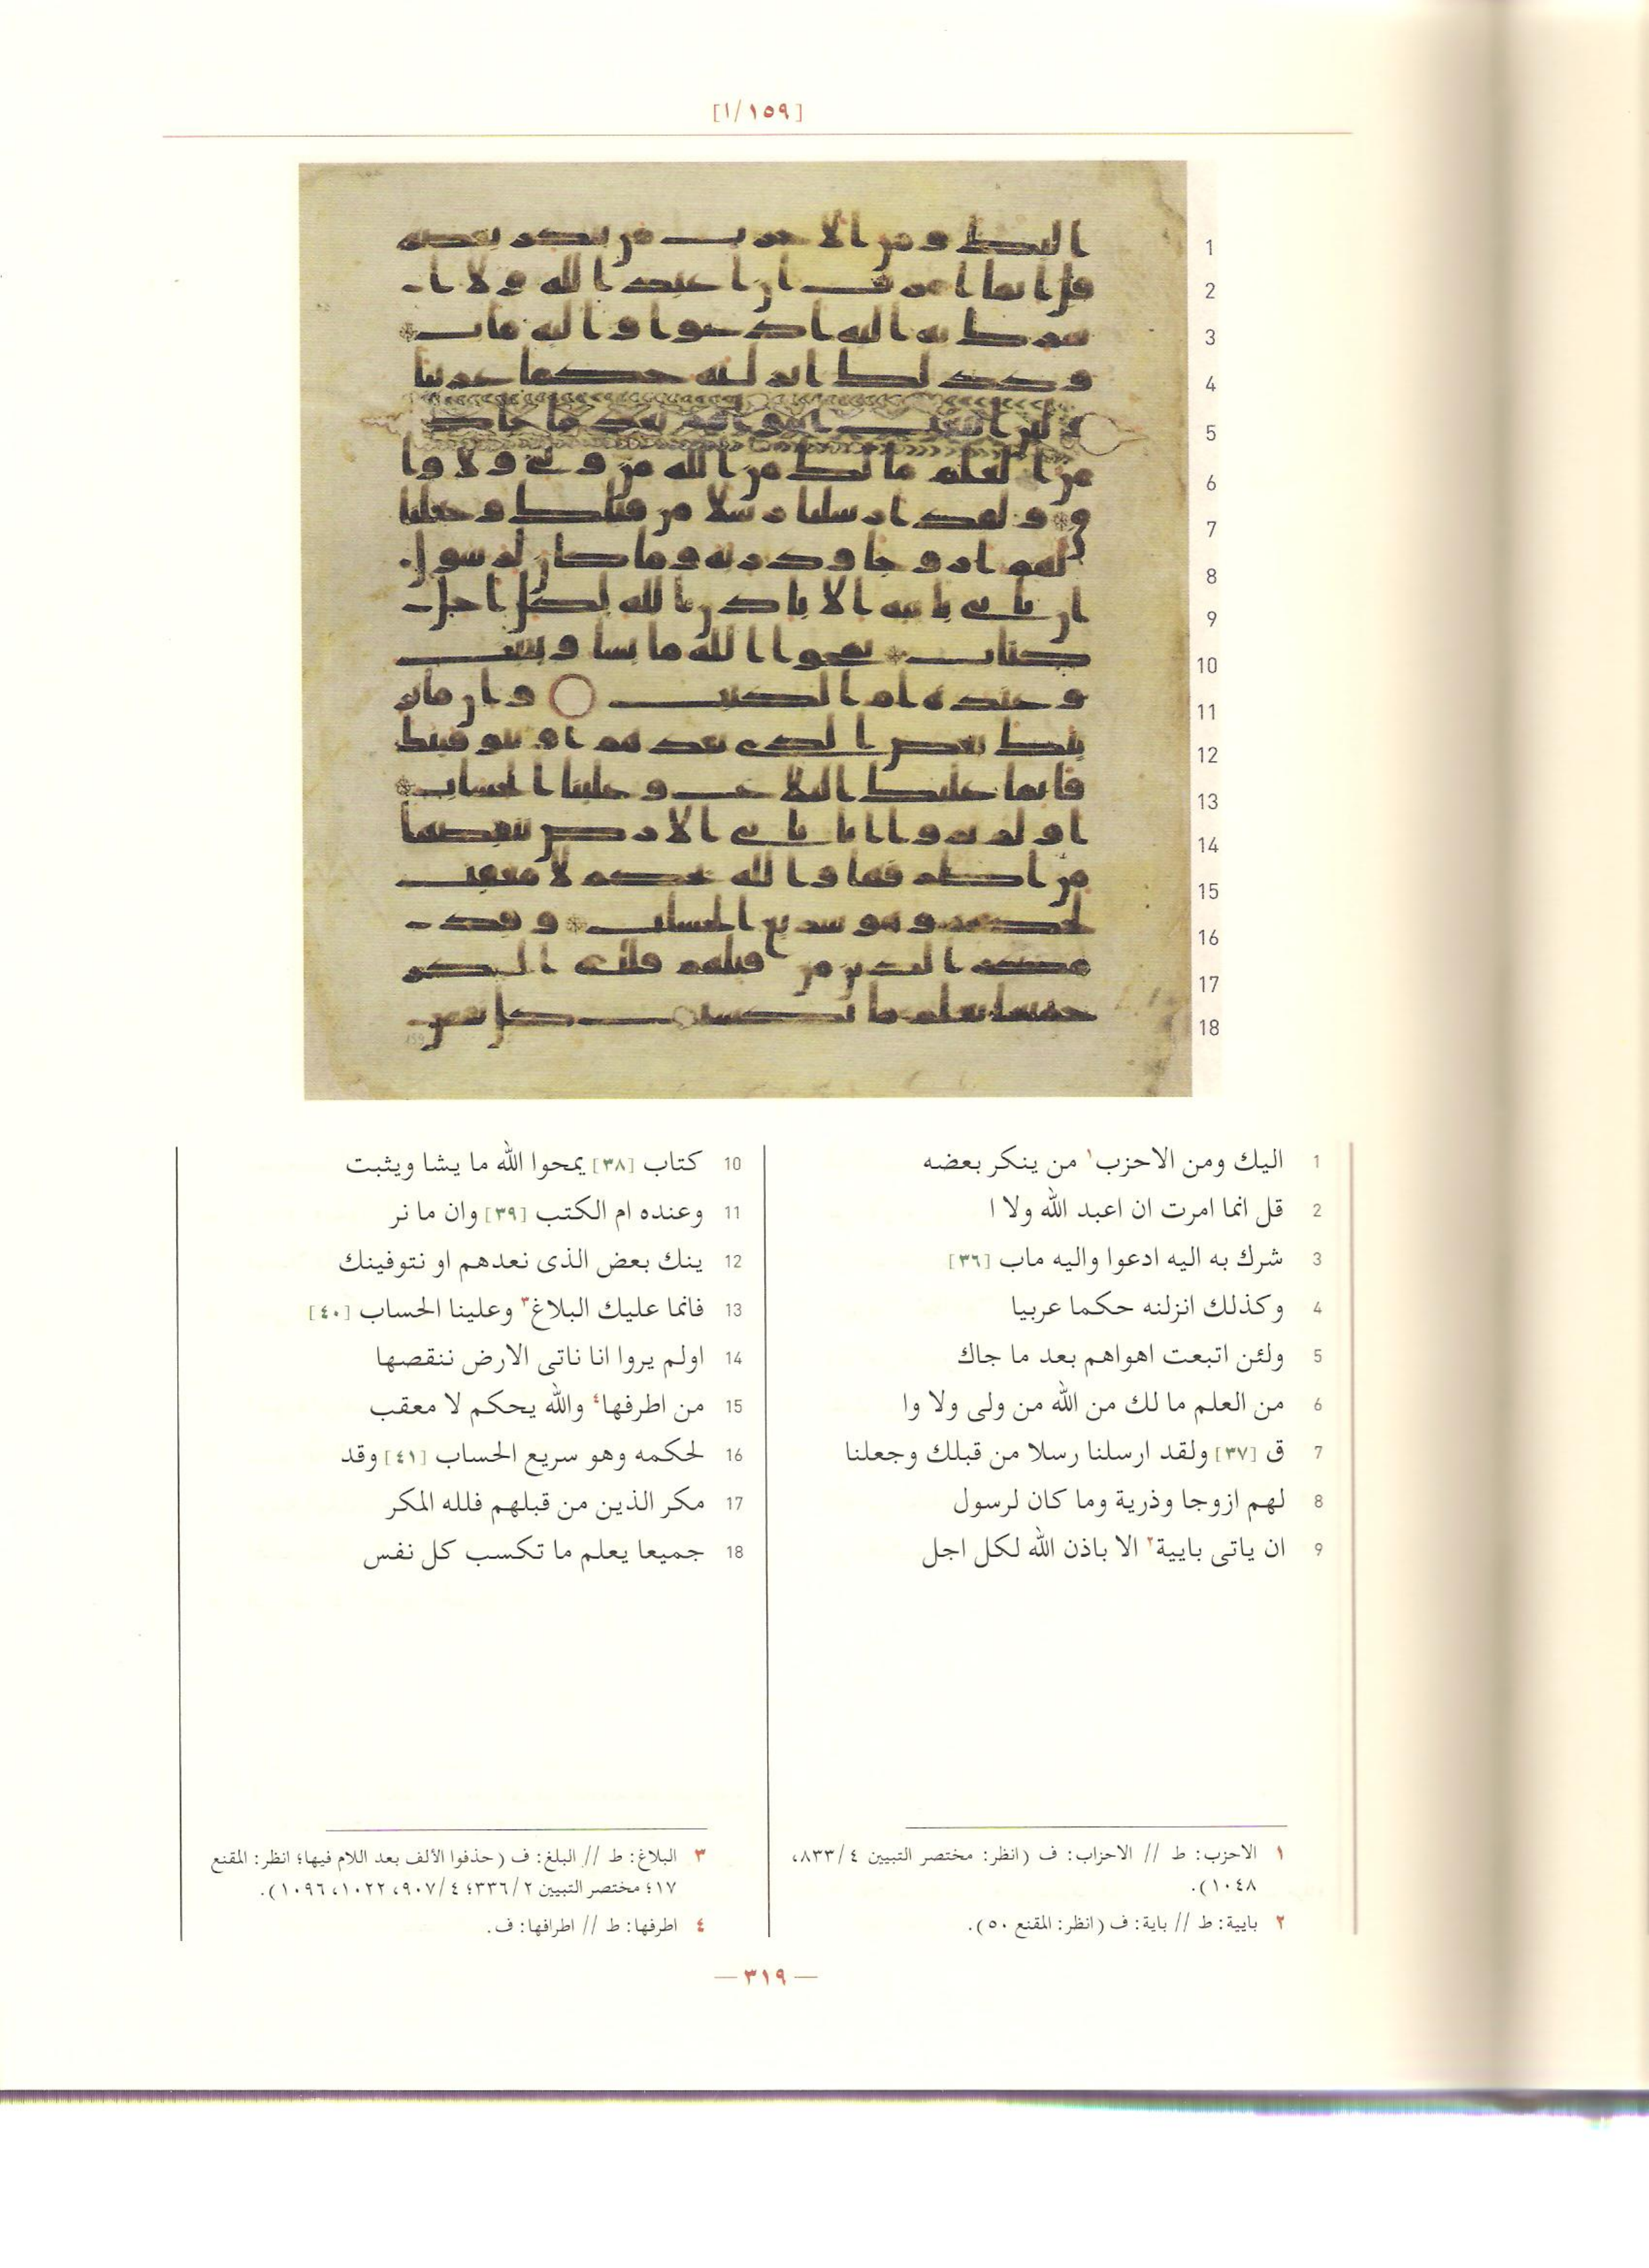 [١/١٥٩]
1 اليك ومن الاحزب١ من ينكر بعضه
2 قل انما امرت ان اعبد الله ولا ا
3 شرك به اليه ادعوا واليه ماب [٣٦]
4 وكذلك انزلنه حكما عربيا
5 ولئن اتبعت اهواهم بعد ما جاك
6 من العلم ما لك من الله من ولى ولا وا
7 ق [٣٧] ولقد ارسلنا رسلا من قبلك وجعلنا
8 لهم ازوجا وذرية وما كان لرسول
9 ان ياتى بايية٢ الا باذن الله لكل اجل
10 كتاب [٣٨] يمحوا الله ما يشا ويثبت
11 وعنده ام الكتب [٣٩] وان ما نر
12 ينك بعض الذى نعدهم او نتوفينك
13 فانما عليك البلاغ٣ وعلينا الحساب [٤٠]
14 اولم يروا انا ناتى الارض ننقصها
15 من اطرفها٤ والله يحكم لا معقب
16 لحكمه وهو سريع الحساب [٤١] وقد
17 مكر الذين من قبلهم فلله المكر
18 جميعا يعلم ما تكسب كل نفس
١ الاحزب: ط // الاحزاب: ف (انظر: مختصر التبيين ٨٣٣/٤،
١٠٤٨).
٢ بايية: ط // باية: ف (انظر: المقنع ٥٠).
٣ البلاغ: ط // البلغ: ف (حذفوا الألف بعد اللام فيها؛ انظر: المقنع
١٧؛ مختصر التبيين ٣٣٦/٢؛ ٩٠٧/٤، ١٠٢٢، ١٠٩٦).
٤ اطرفها: ط // اطرافها: ف.
— ٣١٩ —